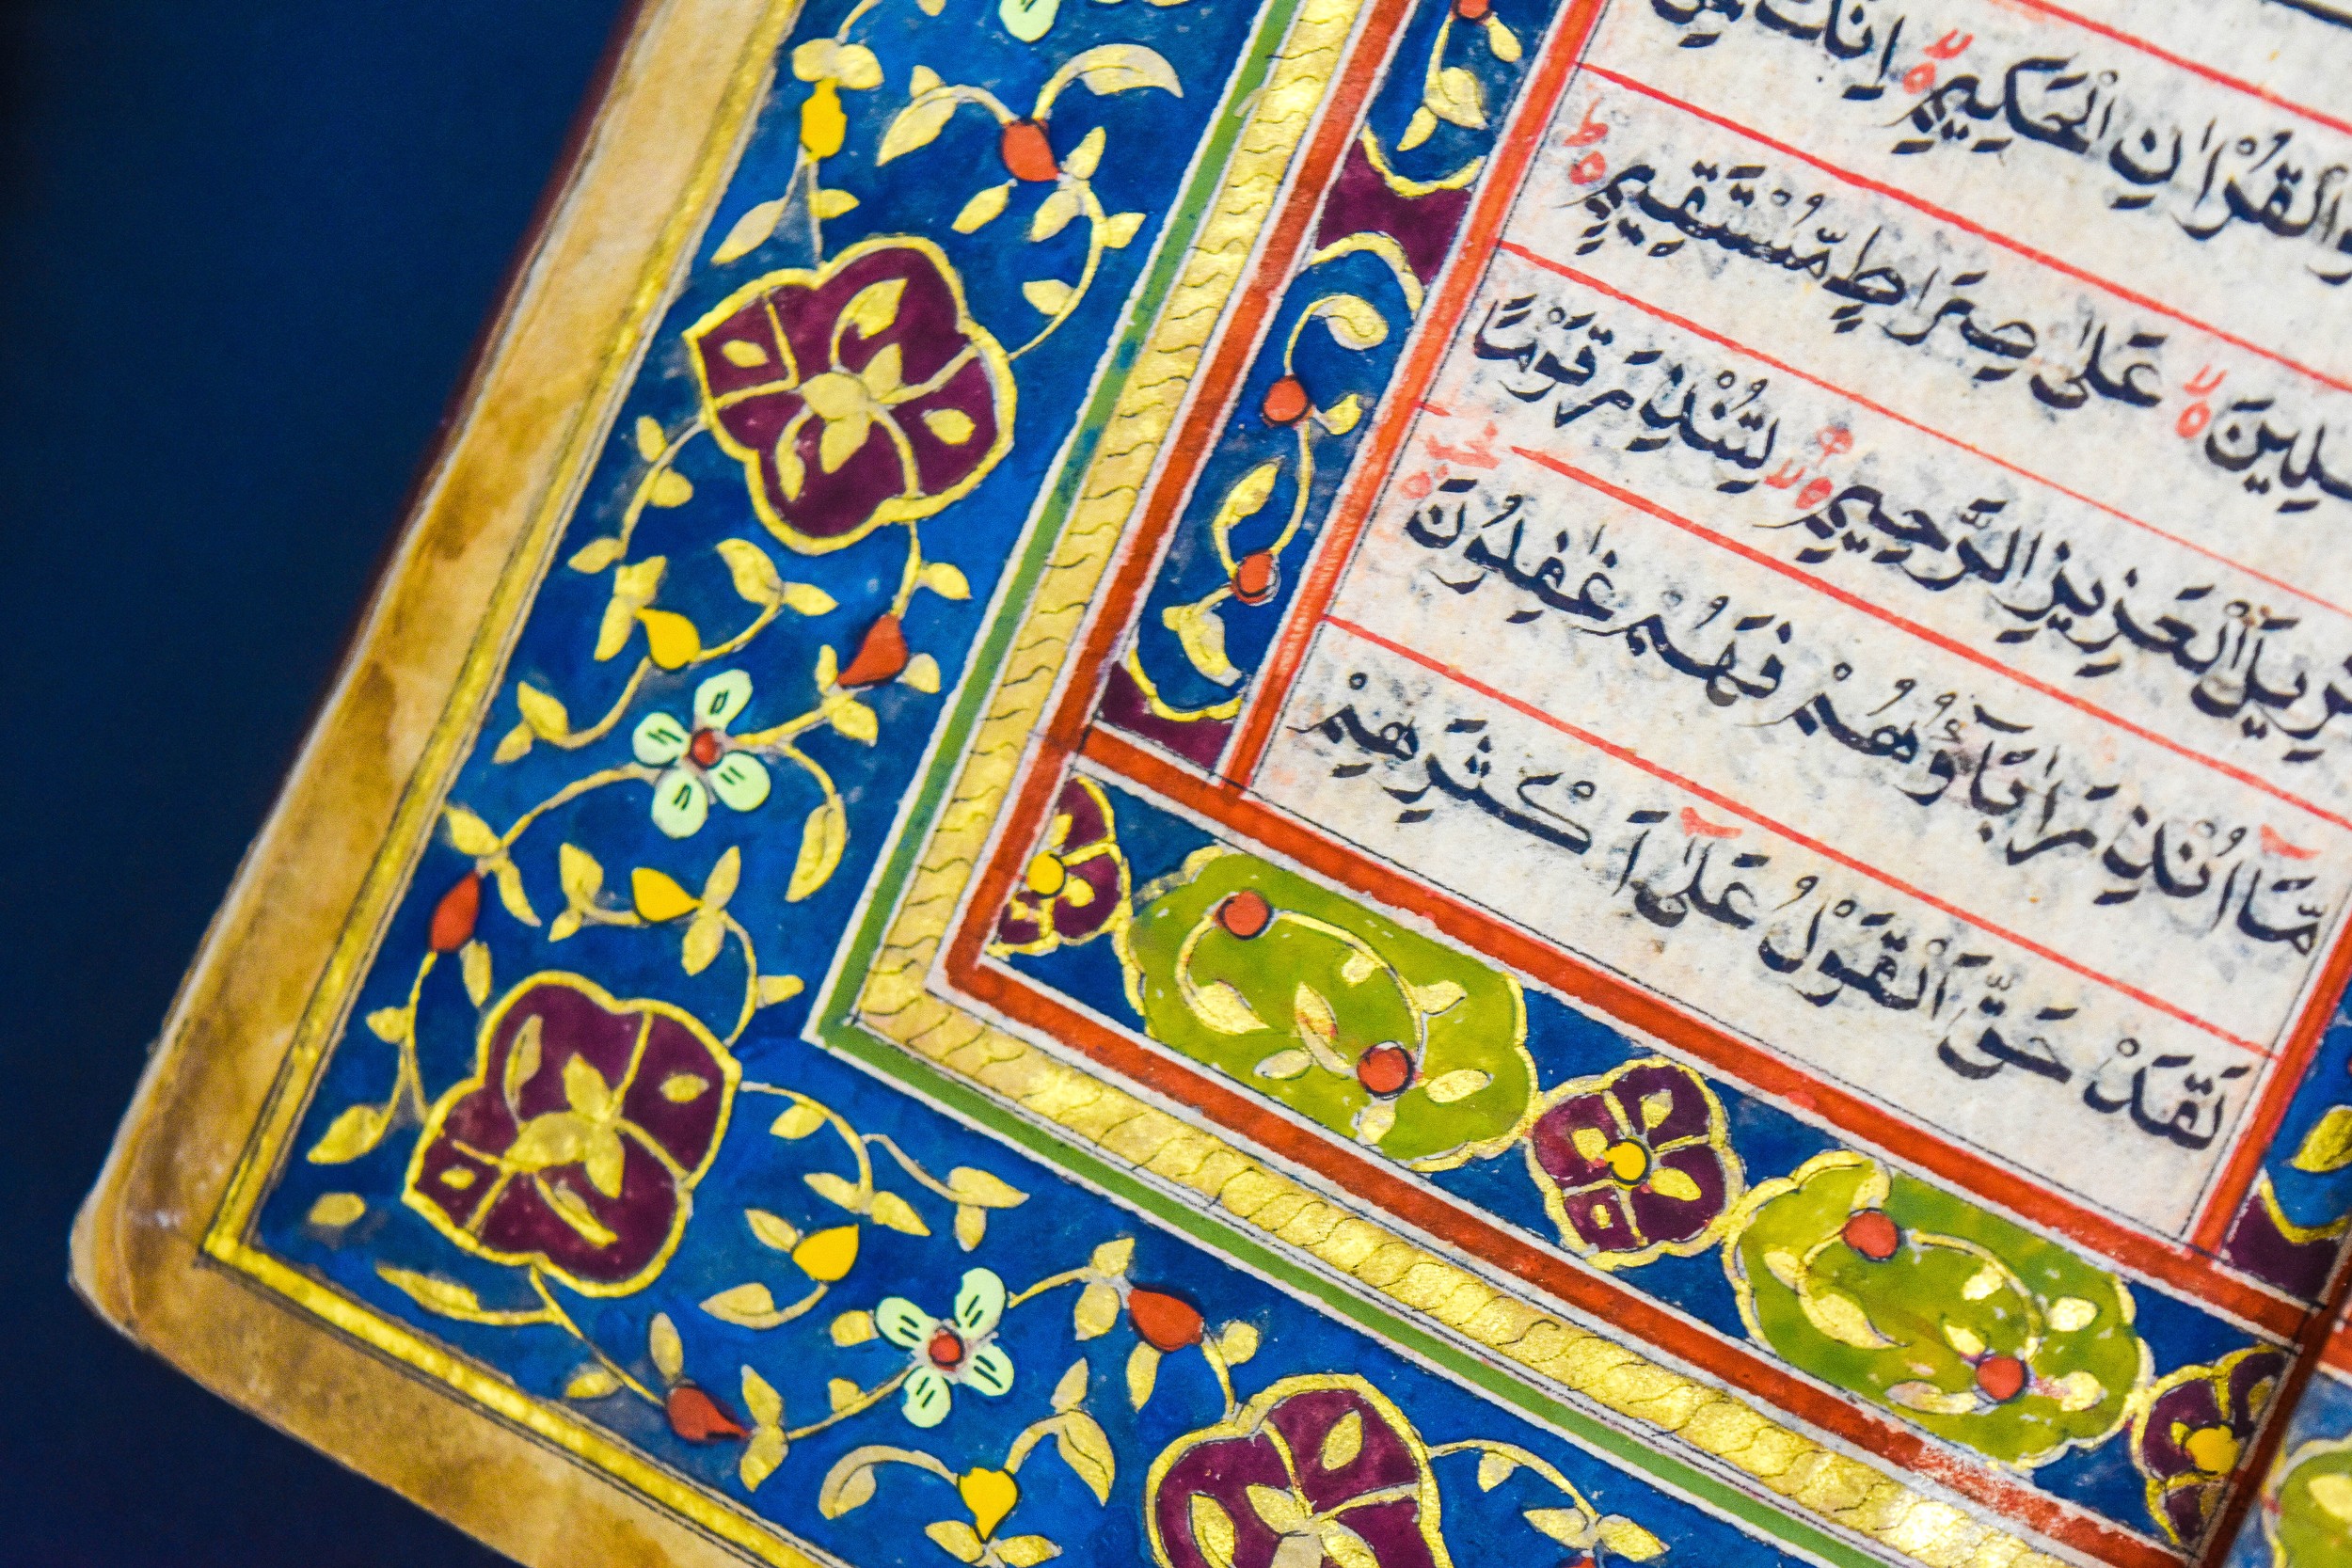 وَالْقُرْاٰنِ الْحَكِيْمِ ۙ اِنَّكَ
عَلٰى صِرَاطٍ مُّسْتَقِيْمٍ ۙ
الْعَزِيْزِ الرَّحِيْمِ ۙ لِتُنْذِرَ قَوْمًا
مَّاۤ اُنْذِرَ اٰبَآؤُهُمْ فَهُمْ غٰفِلُوْنَ
لَقَدْ حَقَّ الْقَوْلُ عَلٰۤى اَكْثَرِهِمْ